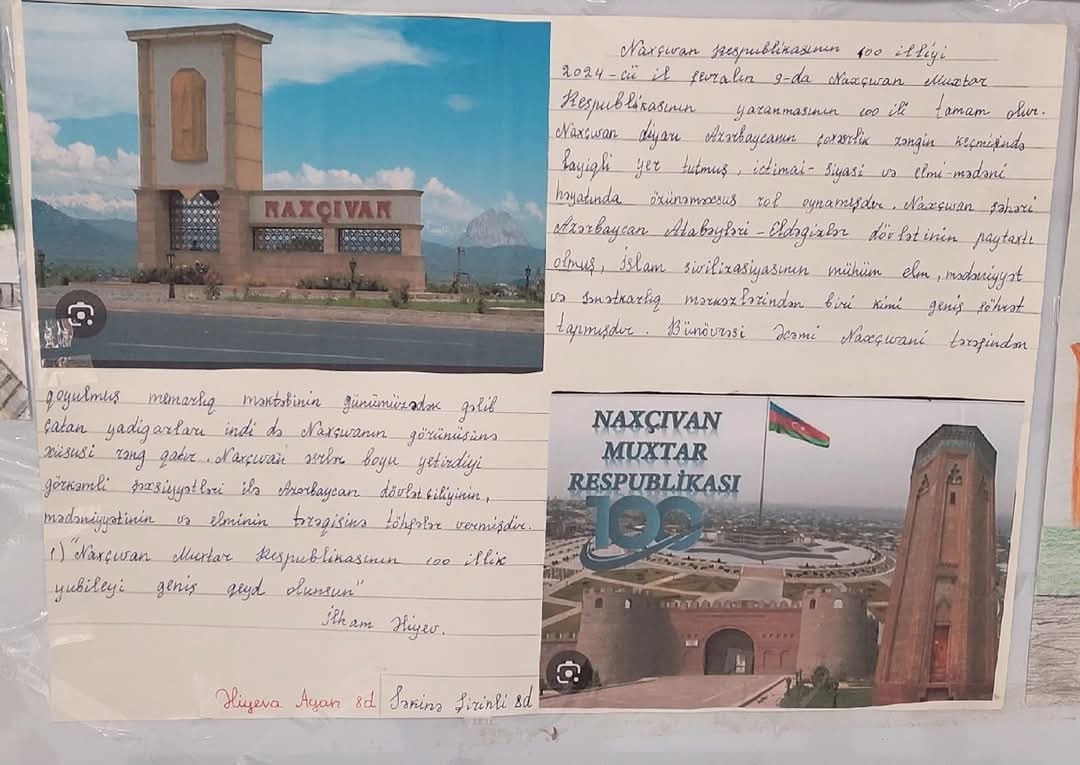 NAXÇIVAN
Naxçıvan Respublikasının 100 illiyi
2024-cü il fevralın 9-da Naxçıvan Muxtar
Respublikasının yaranmasının 100 ili tamam olur.
Naxçıvan diyarı Azərbaycanın çoxəsrlik zəngin keçmişində
layiqli yer tutmuş, ictimai-siyasi və elmi-mədəni
həyatında özünəməxsus rol oynamışdır. Naxçıvan şəhəri
Azərbaycan Atabəyləri-Eldəgizlər dövlətinin paytaxtı
olmuş, İslam sivilizasiyasının mühüm elm, mədəniyyət
və sənətkarlıq mərkəzlərindən biri kimi geniş şöhrət
tapmışdır. Bünövrəsi Əcəmi Naxçıvani tərəfindən
qoyulmuş memarlıq məktəbinin günümüzədək gəlib
çatan yadigarları indi də Naxçıvanın görünüşünə
xüsusi rəng qatır. Naxçıvan əsrlər boyu yetirdiyi
görkəmli şəxsiyyətləri ilə Azərbaycan dövlətçiliyinin,
mədəniyyətinin və elminin tərəqisinə töhfələr vermişdir.
1) "Naxçıvan Muxtar Respublikasının 100 illik
yubileyi geniş qeyd olunsun"
İlham Əliyev.
NAXÇIVAN
MUXTAR
RESPUBLİKASI
100
Əliyeva Ayan 8d
Səkinə Şirinli 8d